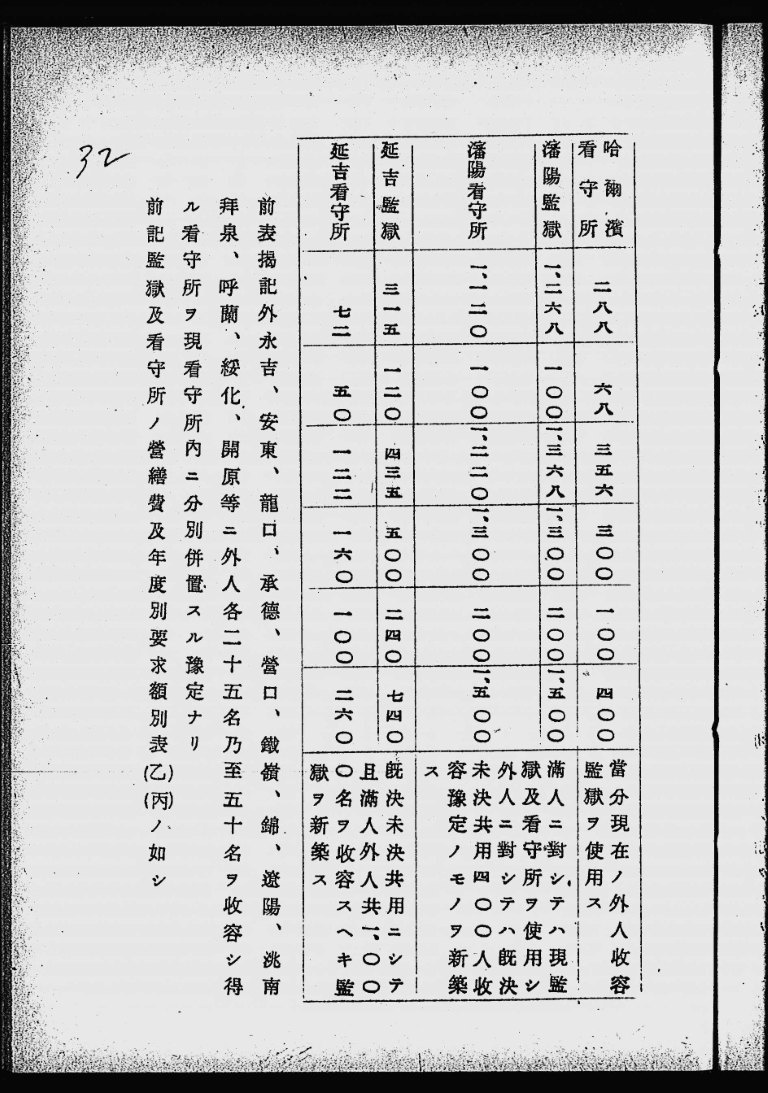 哈爾濱
看守所
二八八
六八
三五六
三〇〇
一〇〇
四〇〇
當分現在ノ外人收容
監獄ヲ使用ス
瀋陽監獄
一、二六八
一〇〇
一、三六八
一、三〇〇
二〇〇
一、五〇〇
滿人ニ對シテハ現監
獄及看守所ヲ使用シ
外人ニ對シテハ既決
未決共用四〇〇人收
容豫定ノモノヲ新築
ス
瀋陽看守所
一、一二〇
一〇〇
一、二二〇
一、三〇〇
二〇〇
一、五〇〇
延吉監獄
三一五
一二〇
四三五
五〇〇
二四〇
七四〇
既決未決共用ニシテ
且滿人外人共一、〇〇
〇名ヲ收容スヘキ監
獄ヲ新築ス
延吉看守所
七二
五〇
一二二
一六〇
一〇〇
二六〇
前表揭記外永吉、安東、龍口、承德、營口、鐵嶺、錦、遼陽、洮南
拜泉、呼蘭、綏化、開原等ニ外人各二十五名乃至五十名ヲ收容シ得
ル看守所ヲ現看守所內ニ分別併置スル豫定ナリ
前記監獄及看守所ノ營繕費及年度別要求額別表(乙)(丙)ノ如シ
32